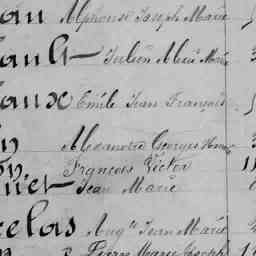 au Alphonse Joseph Marie
ault Julien Marie
aux Emile Jean François
n Alexandre Georges
on François Victor
uet Jean Marie
celas Aug^te Jean Marie
Pierre Marie Joseph